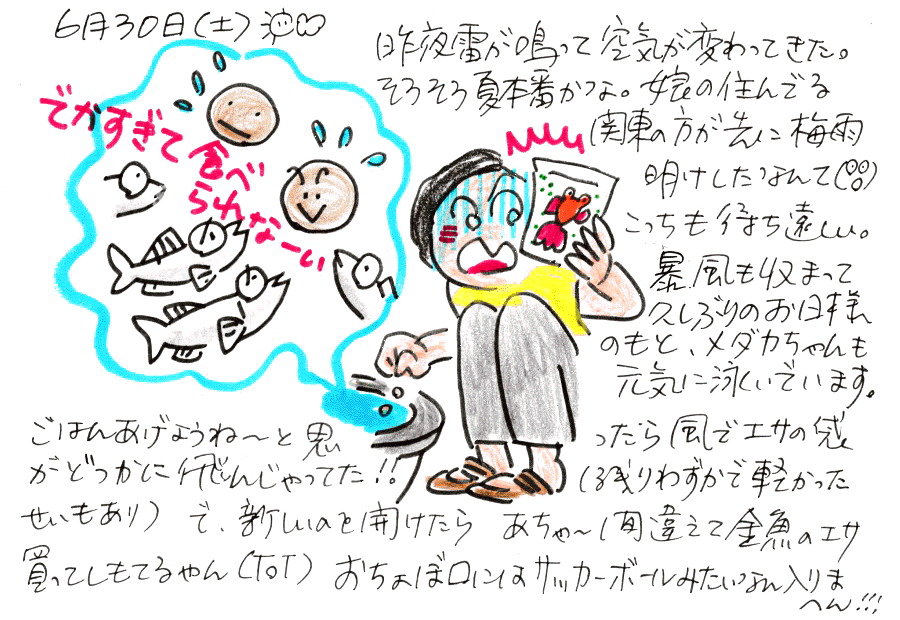 6月30日(土)
昨夜雷が鳴って空気が変わってきた。
そろそろ夏本番かなよ。娘の住んでる
関東の方が先に梅雨
明けしたなんて
こっちも待ち遠しい。
暴風も収まって
久しぶりのお日様
のもと、メダカちゃんも
元気に泳いでいます。
でかすぎて食べ
られなーい
ごはんあげようね〜と思ったら風でエサの袋
がどっかに飛んじゃってた!!(残りわずかで軽かった
せいもあり)で、新しいのと開けたら あちゃ〜間違えて金魚のエサ
買ってしもてるやん(ToT) おちょぼ口にはサッカーボールみたいなん入りま
へん!!!